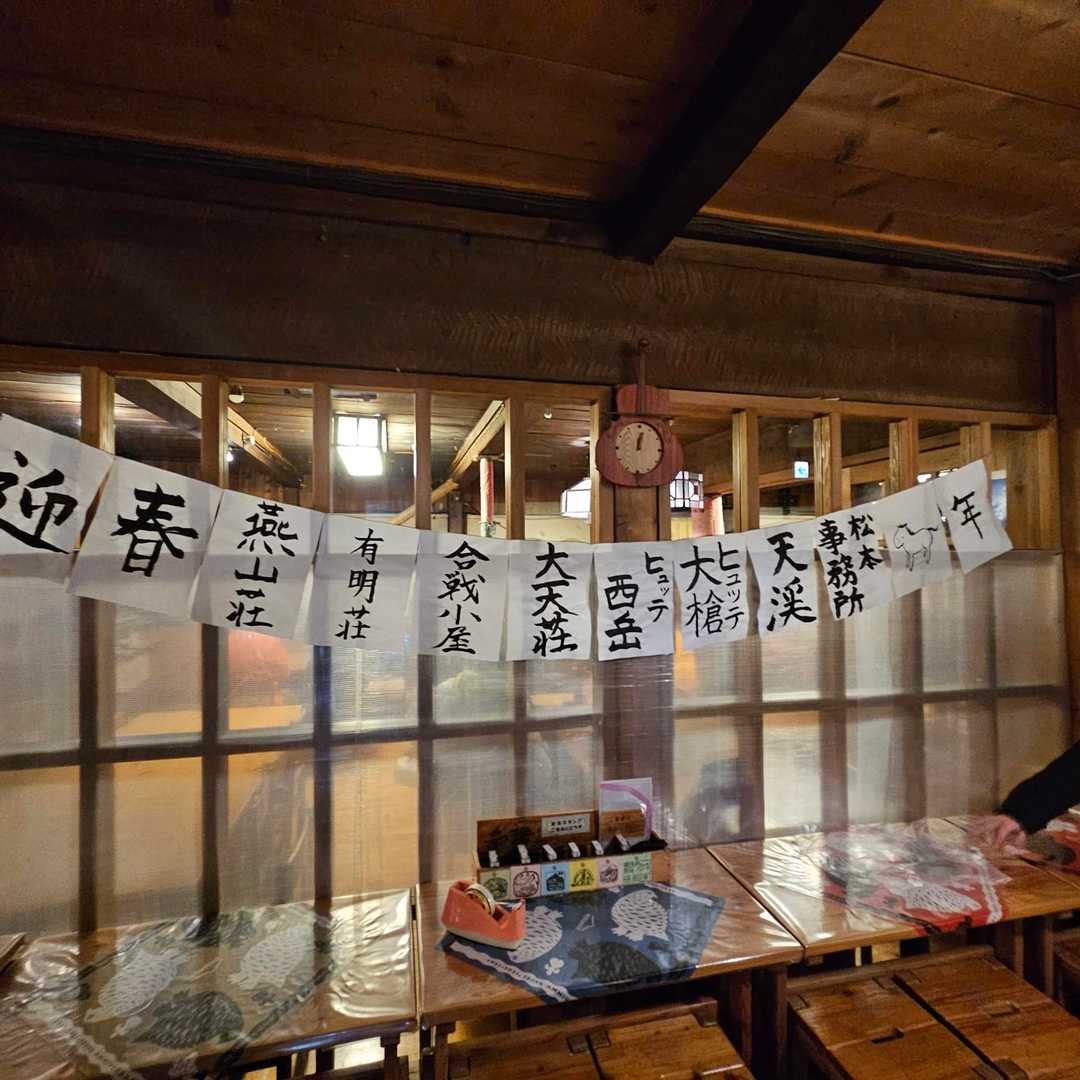 迎
春
燕山荘
有明荘
合戦小屋
大天荘
ヒュッテ
西岳
ヒュッテ
大槍
天渓
松本
事務所
年